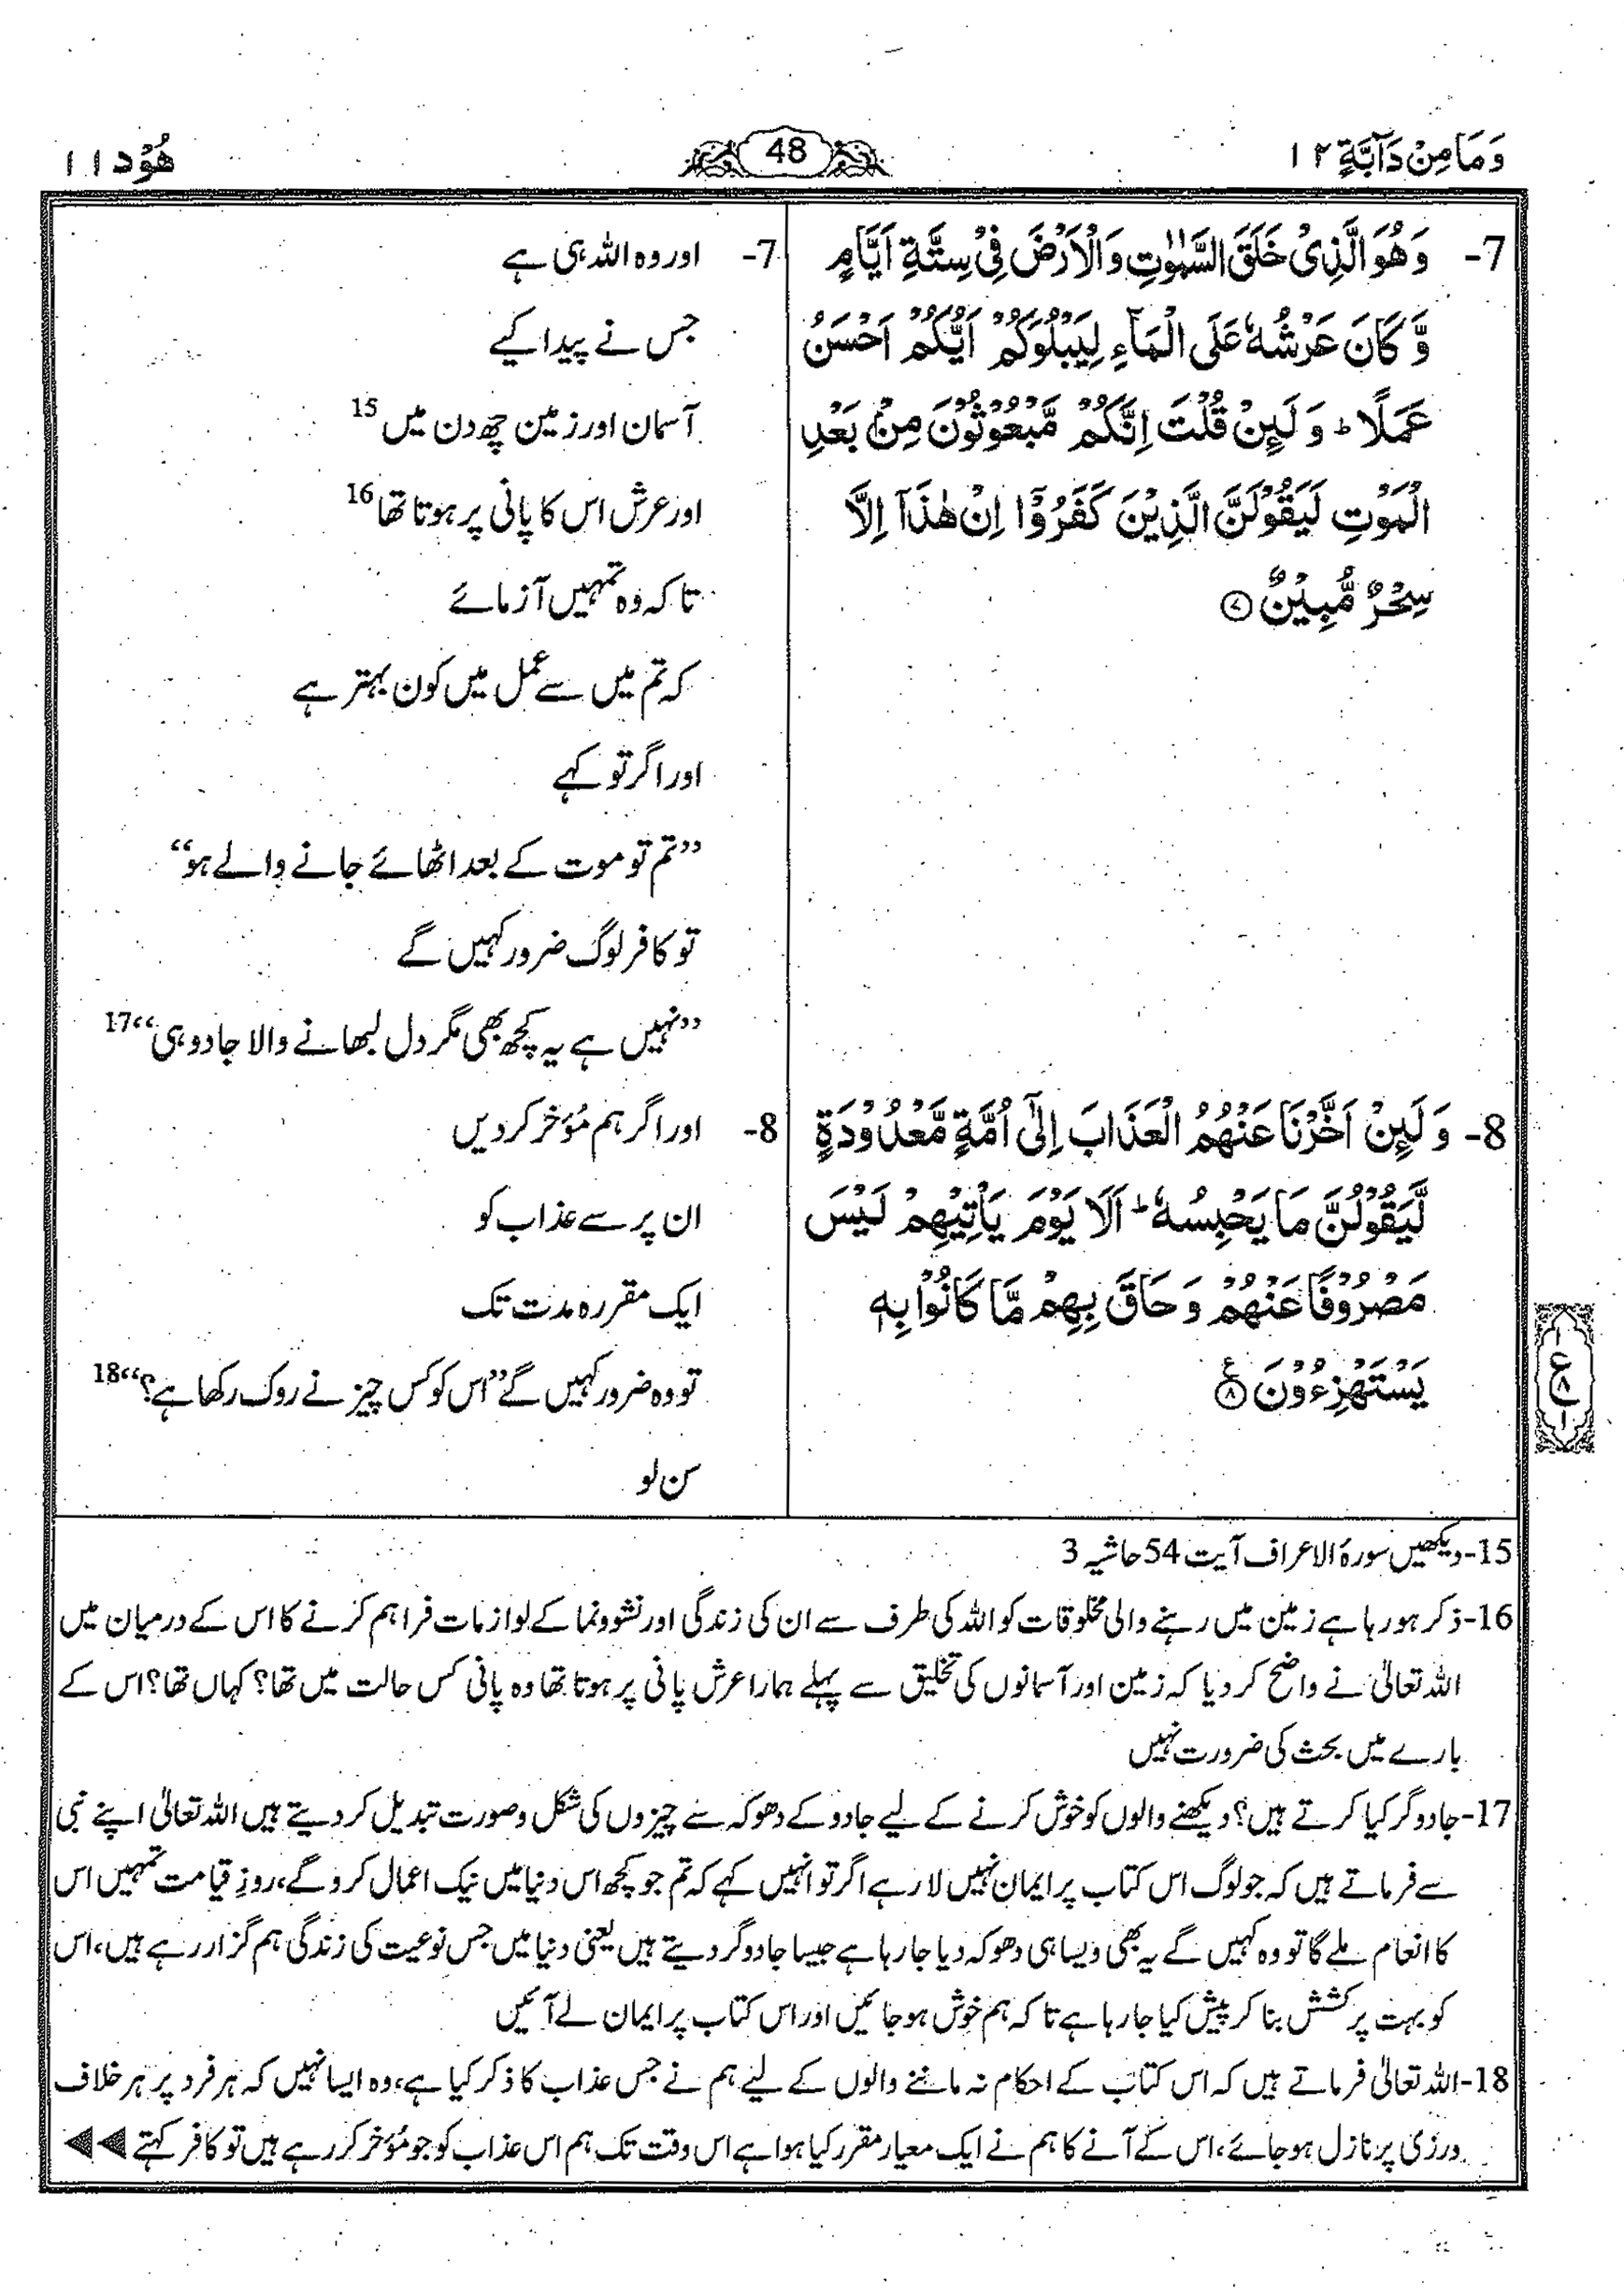 وَمَا مِنْ دَآبَّةٍ ۱۲
48
هُوْد ۱۱
7- وَهُوَ الَّذِیْ خَلَقَ السَّمٰوٰتِ وَالْاَرْضَ فِیْ سِتَّةِ اَیَّامٍ
وَّ كَانَ عَرْشُهٗ عَلَی الْمَآءِ لِیَبْلُوَكُمْ اَیُّكُمْ اَحْسَنُ
عَمَلًا ؕ وَ لَىِٕنْ قُلْتَ اِنَّكُمْ مَّبْعُوْثُوْنَ مِنْۢ بَعْدِ
الْمَوْتِ لَیَقُوْلَنَّ الَّذِیْنَ كَفَرُوْۤا اِنْ هٰذَاۤ اِلَّا
سِحْرٌ مُّبِیْنٌ ۷
7- اور وہ اللہ ہی ہے
جس نے پیدا کیے
آسمان اور زمین چھ دن میں 15
اور عرش اس کا پانی پر ہوتا تھا 16
تا کہ وہ تمہیں آزمائے
کہ تم میں سے عمل میں کون بہتر ہے
اور اگر تو کہے
”تم تو موت کے بعد اٹھائے جانے والے ہو“
تو کافر لوگ ضرور کہیں گے
”نہیں ہے یہ کچھ بھی مگر دل لبھانے والا جادو ہی“ 17
8- وَ لَىِٕنْ اَخَّرْنَا عَنْهُمُ الْعَذَابَ اِلٰۤی اُمَّةٍ مَّعْدُوْدَةٍ
لَّیَقُوْلُنَّ مَا یَحْبِسُهٗ ؕ اَلَا یَوْمَ یَاْتِیْهِمْ لَیْسَ
مَصْرُوْفًا عَنْهُمْ وَ حَاقَ بِهِمْ مَّا كَانُوْا بِهٖ
یَسْتَهْزِءُوْنَ ۸ ع
8- اور اگر ہم مُؤخر کر دیں
ان پر سے عذاب کو
ایک مقررہ مدت تک
تو وہ ضرور کہیں گے ”اس کو کس چیز نے روک رکھا ہے؟“ 18
سن لو
۱ ع ۸ ۱
15- دیکھیں سورۃ الاعراف آیت 54 حاشیہ 3
16- ذکر ہو رہا ہے زمین میں رہنے والی مخلوقات کو اللہ کی طرف سے ان کی زندگی اور نشوونما کے لوازمات فراہم کرنے کا اس کے درمیان میں
اللہ تعالیٰ نے واضح کر دیا کہ زمین اور آسمانوں کی تخلیق سے پہلے ہمارا عرش پانی پر ہوتا تھا وہ پانی کس حالت میں تھا؟ کہاں تھا؟ اس کے
بارے میں بحث کی ضرورت نہیں
17- جادوگر کیا کرتے ہیں؟ دیکھنے والوں کو خوش کرنے کے لیے جادو کے دھوکہ سے چیزوں کی شکل و صورت تبدیل کر دیتے ہیں اللہ تعالیٰ اپنے نبی
سے فرماتے ہیں کہ جو لوگ اس کتاب پر ایمان نہیں لا رہے اگر تو انہیں کہے کہ تم جو کچھ اس دنیا میں نیک اعمال کرو گے، روزِ قیامت تمہیں اس
کا انعام ملے گا تو وہ کہیں گے یہ بھی ویسا ہی دھوکہ دیا جا رہا ہے جیسا جادوگر دیتے ہیں یعنی دنیا میں جس نوعیت کی زندگی ہم گزار رہے ہیں، اس
کو بہت پرکشش بنا کر پیش کیا جا رہا ہے تا کہ ہم خوش ہو جائیں اور اس کتاب پر ایمان لے آئیں
18- اللہ تعالیٰ فرماتے ہیں کہ اس کتاب کے احکام نہ ماننے والوں کے لیے ہم نے جس عذاب کا ذکر کیا ہے، وہ ایسا نہیں کہ ہر فرد پر ہر خلاف
ورزی پر نازل ہو جائے، اس کے آنے کا ہم نے ایک معیار مقرر کیا ہوا ہے اس وقت تک ہم اس عذاب کو جو مُؤخر کر رہے ہیں تو کافر کہتے ◀◀